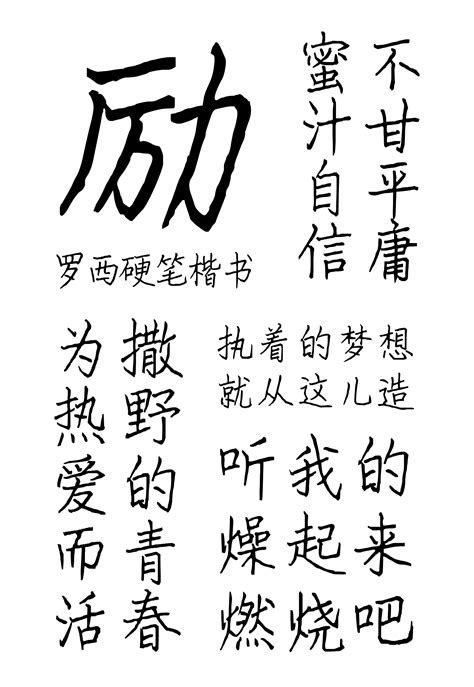 励
罗西硬笔楷书
不甘平庸
蜜汁自信
撒野的青春
为热爱而活
执着的梦想
就从这儿造
听我的
燥起来
燃烧吧